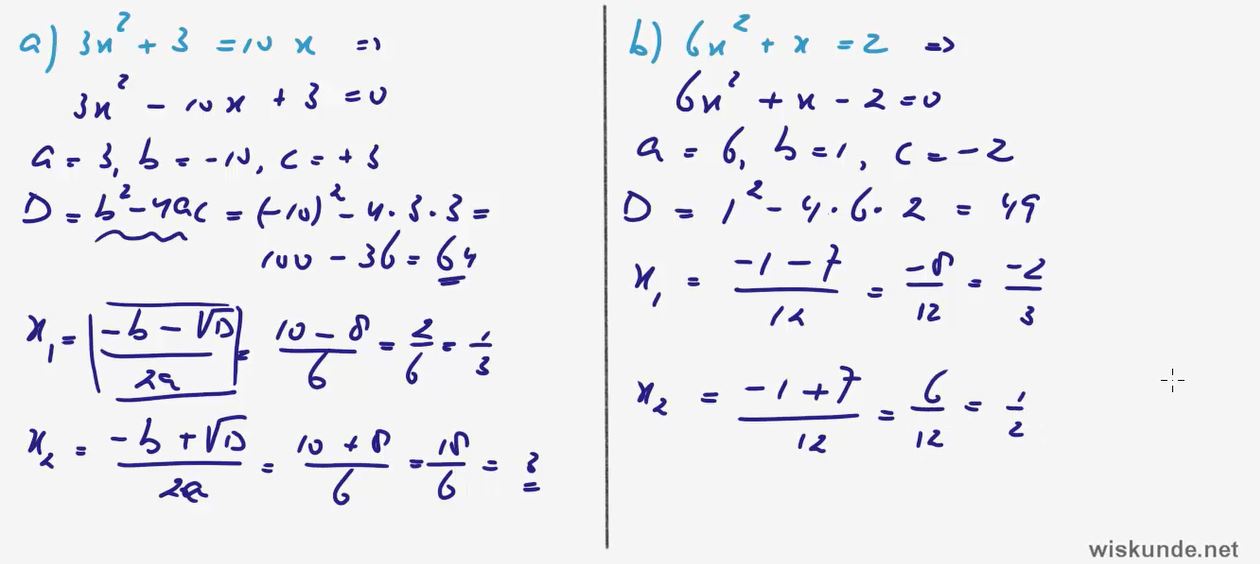 a) 3x² + 3 = 10 x =>
3x² - 10x + 3 = 0
a = 3, b = -10, c = +3
D = b² - 4ac = (-10)² - 4·3·3 =
100 - 36 = 64
x₁ = (-b - √D)/2a = (10 - 8)/6 = 2/6 = 1/3
x₂ = (-b + √D)/2a = (10 + 8)/6 = 18/6 = 3
b) 6x² + x = 2 =>
6x² + x - 2 = 0
a = 6, b = 1, c = -2
D = 1² - 4·6·2 = 49
x₁ = (-1 - 7)/12 = -8/12 = -2/3
x₂ = (-1 + 7)/12 = 6/12 = 1/2
wiskunde.net